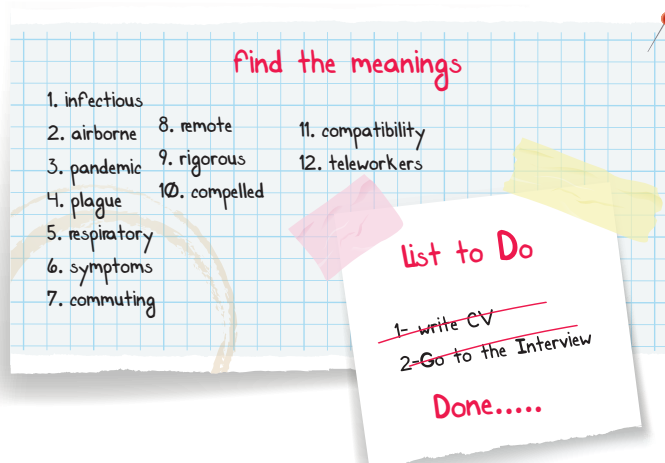 find the meanings
1. infectious
2. airborne
3. pandemic
4. plague
5. respiratory
6. symptoms
7. commuting
8. remote
9. rigorous
10. compelled
11. compatibility
12. teleworkers
List to Do
1- write CV
2-Go to the Interview
Done.....